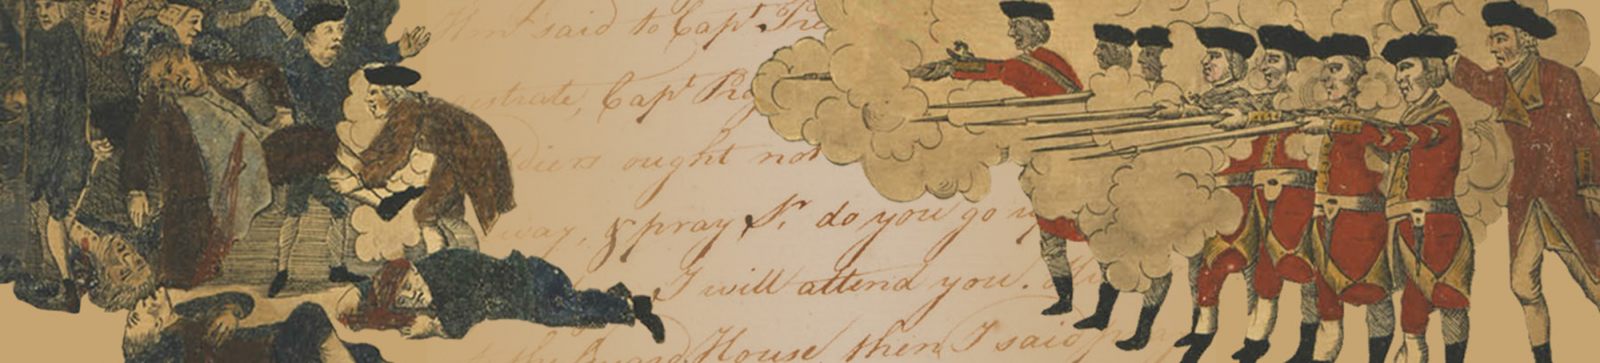 said to Capt. Pre
estrate, Capt. Pre
diers ought not
way, & pray Sr. do you go
I will attend you.
the Guard House then I said